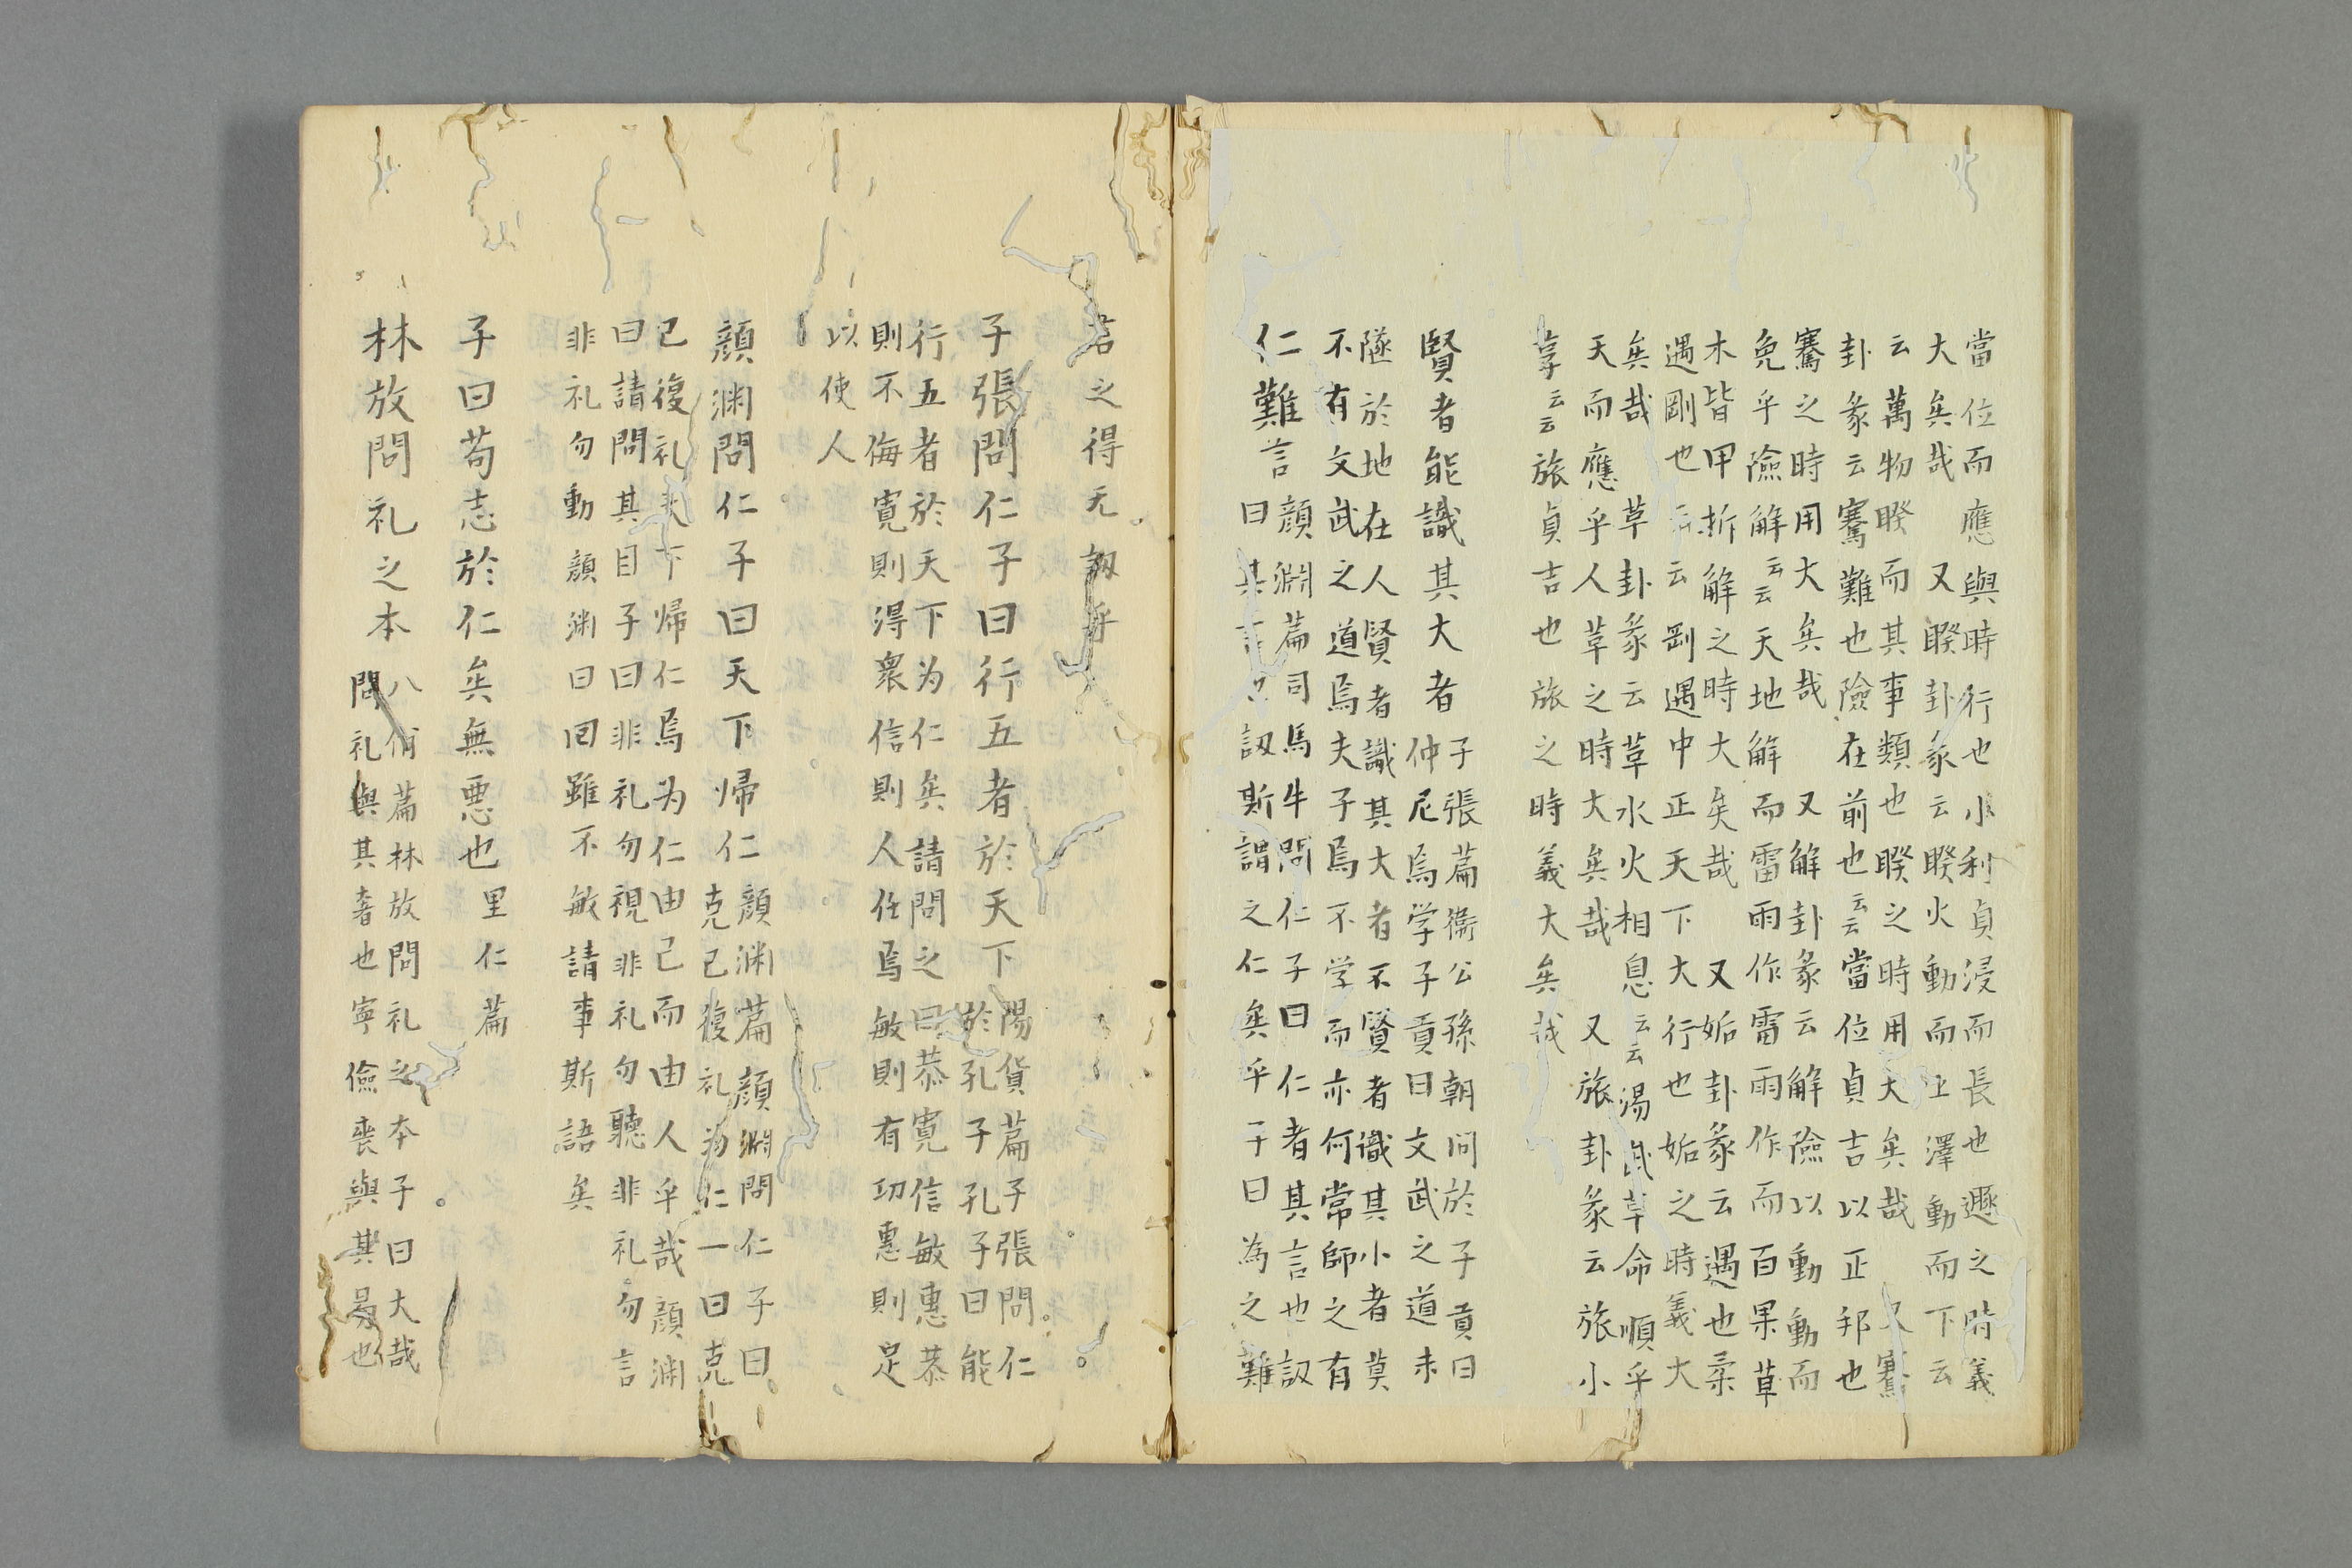 當位而應與時行也小利貞浸而長也遯之時義
大矣哉　又睽卦彖云睽火動而上澤動而下云
云萬物睽而其事類也睽之時用大矣哉　又騫
卦彖云騫難也險在前也云云當位貞吉以正邦也
騫之時用大矣哉　又解卦彖云解險以動動而
免乎險解云云天地解而雷雨作雷雨作而百果草
木皆甲拆解之時大矣哉　又姤卦彖云遇也柔
遇剛也云云剛遇中正天下大行也姤之時義大
矣哉　草卦彖云草水火相息云云湯武草命順乎
天而應乎人草之時大矣哉　又旅卦彖云旅小
享云云旅貞吉也旅之時義大矣哉
賢者能識其大者　子張篇衞公孫朝問於子貢曰
仲尼焉学子貢曰文武之道未
墜於地在人賢者識其大者不賢者識其小者莫
不有文武之道焉夫子焉不学而亦何常師之有
仁難言　顔淵篇司馬牛問仁子曰仁者其言也訒
曰其言也訒斯謂之仁矣乎子曰為之難
言之得无訒乎
子張問仁子曰行五者於天下　陽貨篇子張問仁
於孔子孔子曰能
行五者於天下为仁矣請問之曰恭寛信敏惠恭
則不侮寛則得衆信則人任焉敏則有功惠則足
以使人
顔渊問仁子曰天下帰仁　顔渊篇顔淵問仁子曰
克己復礼为仁一日克
己復礼天下帰仁焉为仁由己而由人乎哉顔渊
曰請問其目子曰非礼勿視非礼勿聴非礼勿言
非礼勿動顔渊曰回雖不敏請事斯語矣
子曰苟志於仁矣無悪也　里仁篇
林放問礼之本　八佾篇林放問礼之本子曰大哉
問礼與其奢也寧儉喪與其易也